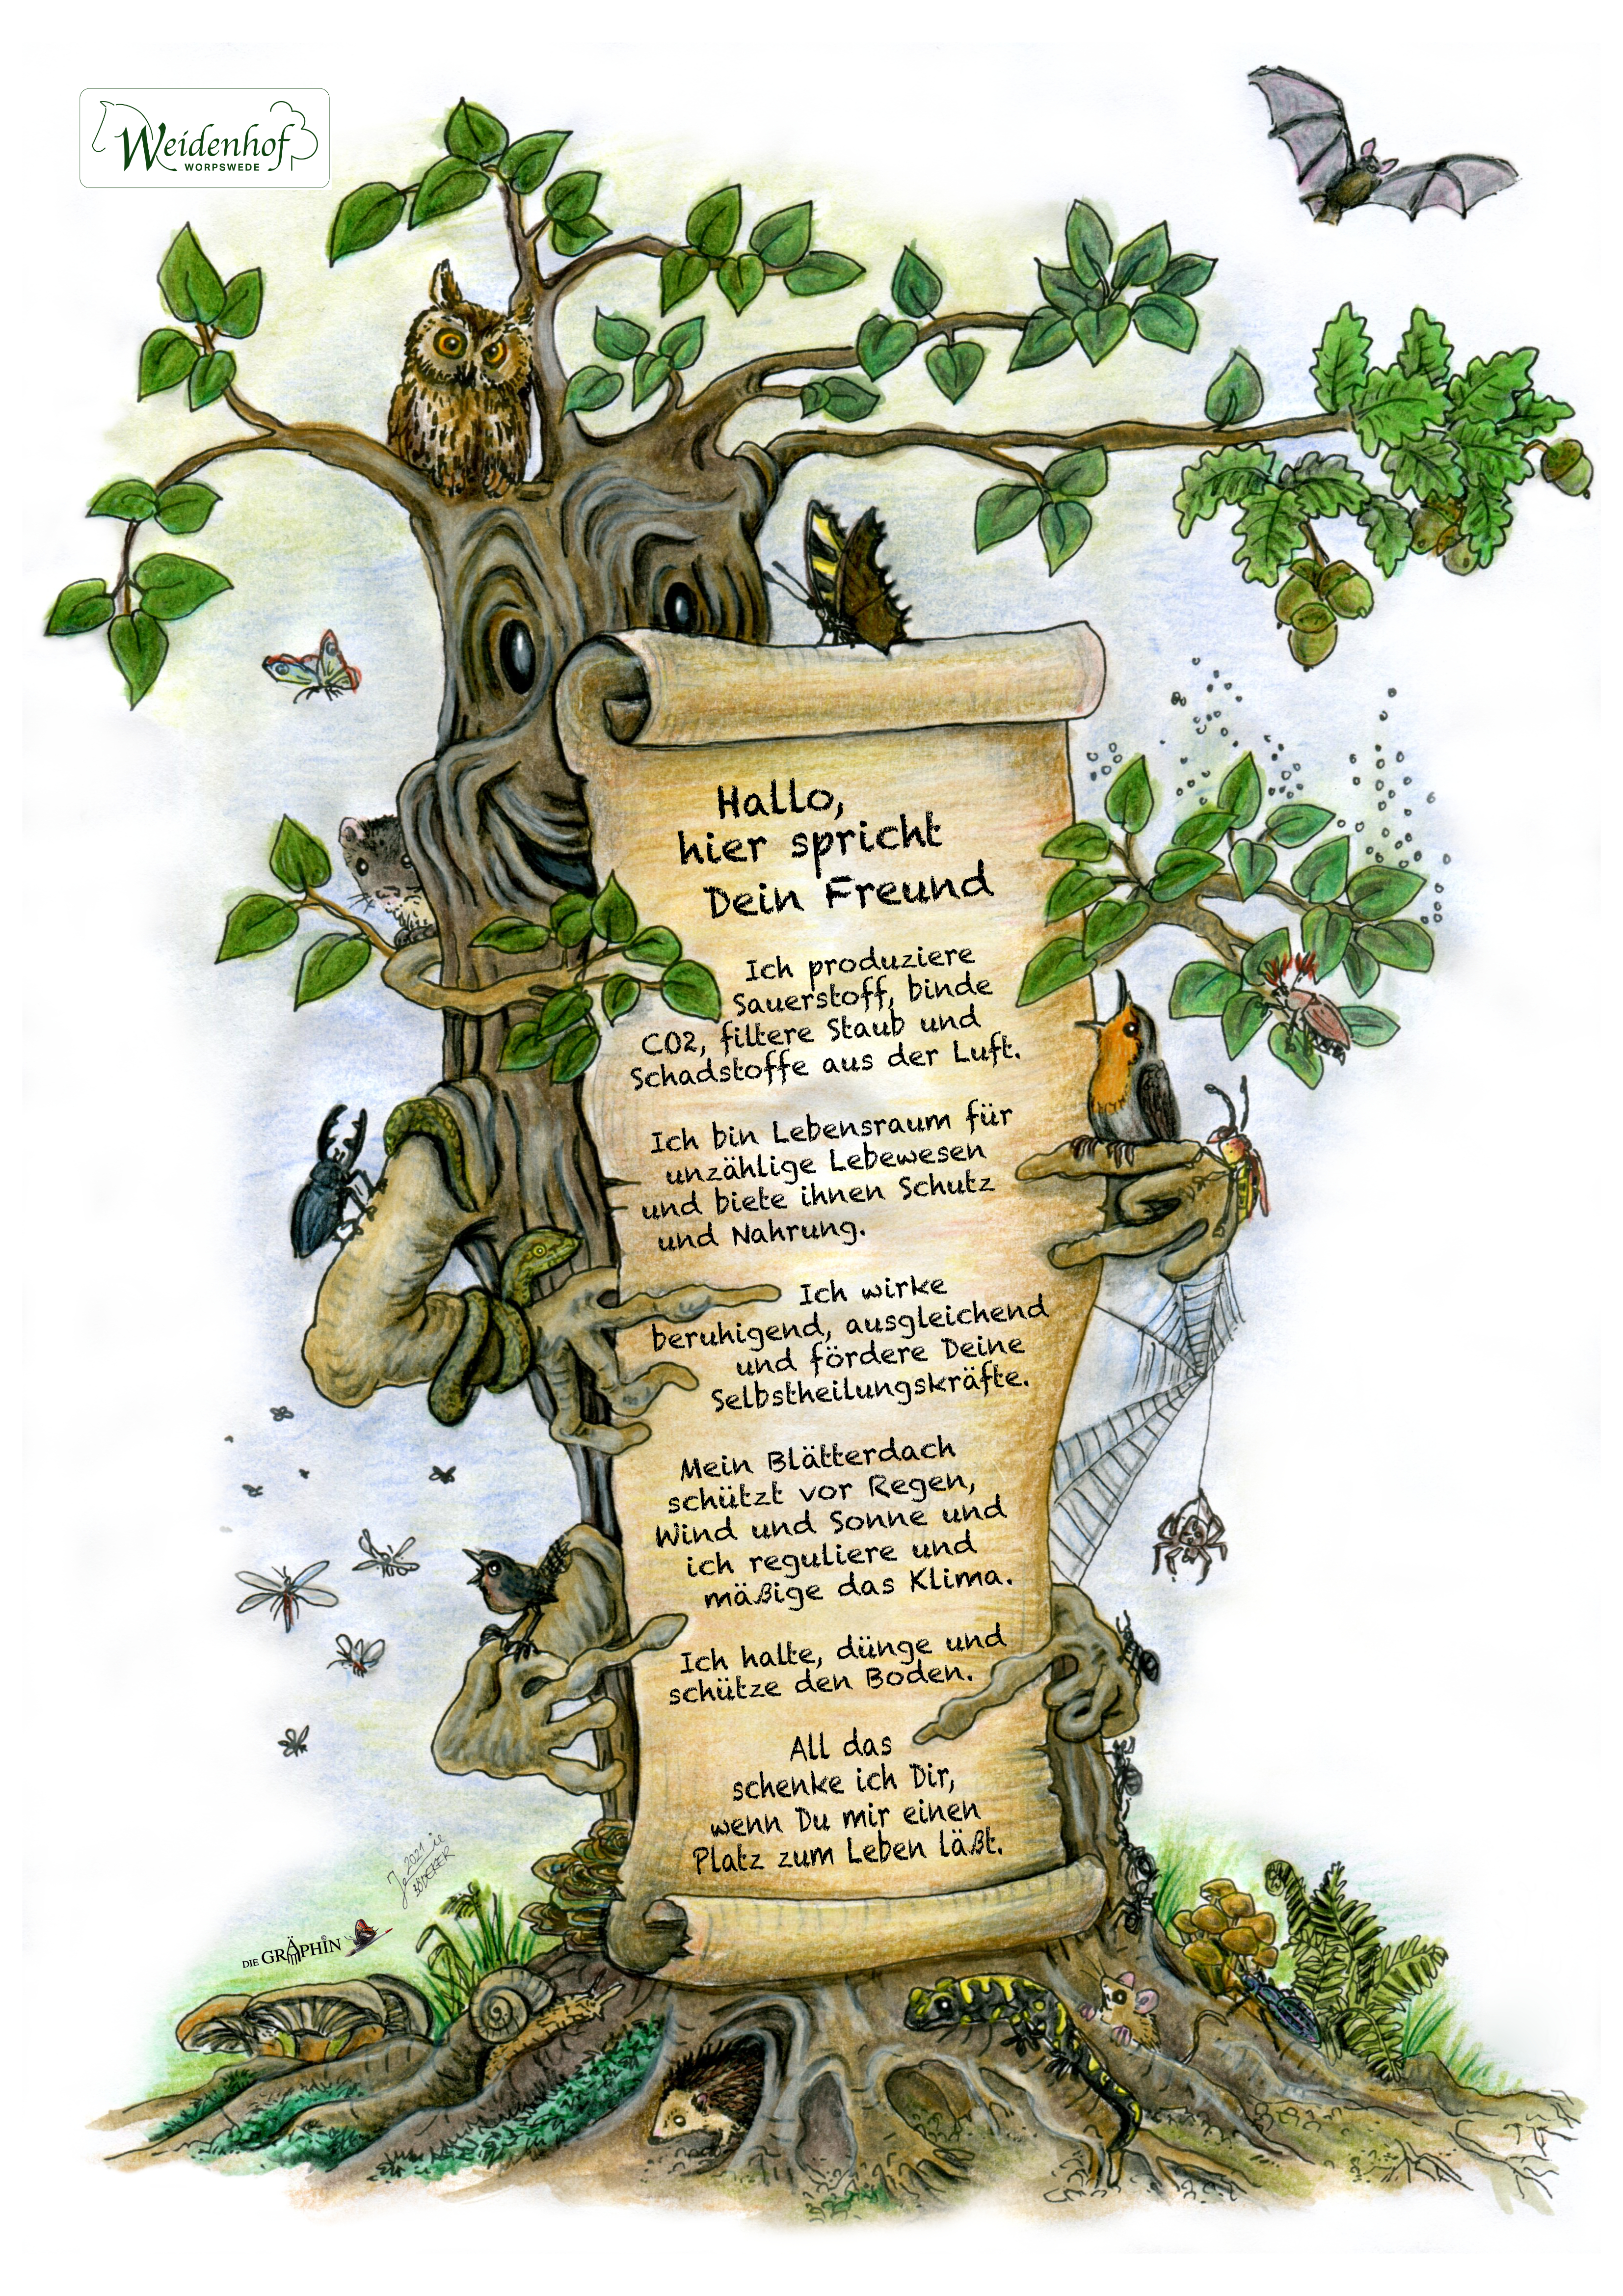 Weidenhof
WORPSWEDE
Hallo,
hier spricht
Dein Freund
Ich produziere
Sauerstoff, binde
CO2, filtere Staub und
Schadstoffe aus der Luft.
Ich bin Lebensraum für
unzählige Lebewesen
und biete ihnen Schutz
und Nahrung.
Ich wirke
beruhigend, ausgleichend
und fördere Deine
Selbstheilungskräfte.
Mein Blätterdach
schützt vor Regen,
Wind und Sonne und
ich reguliere und
mäßige das Klima.
Ich halte, dünge und
schütze den Boden.
All das
schenke ich Dir,
wenn Du mir einen
Platz zum Leben läßt.
2021
BÖDEKER
DIE GRÄPHIN